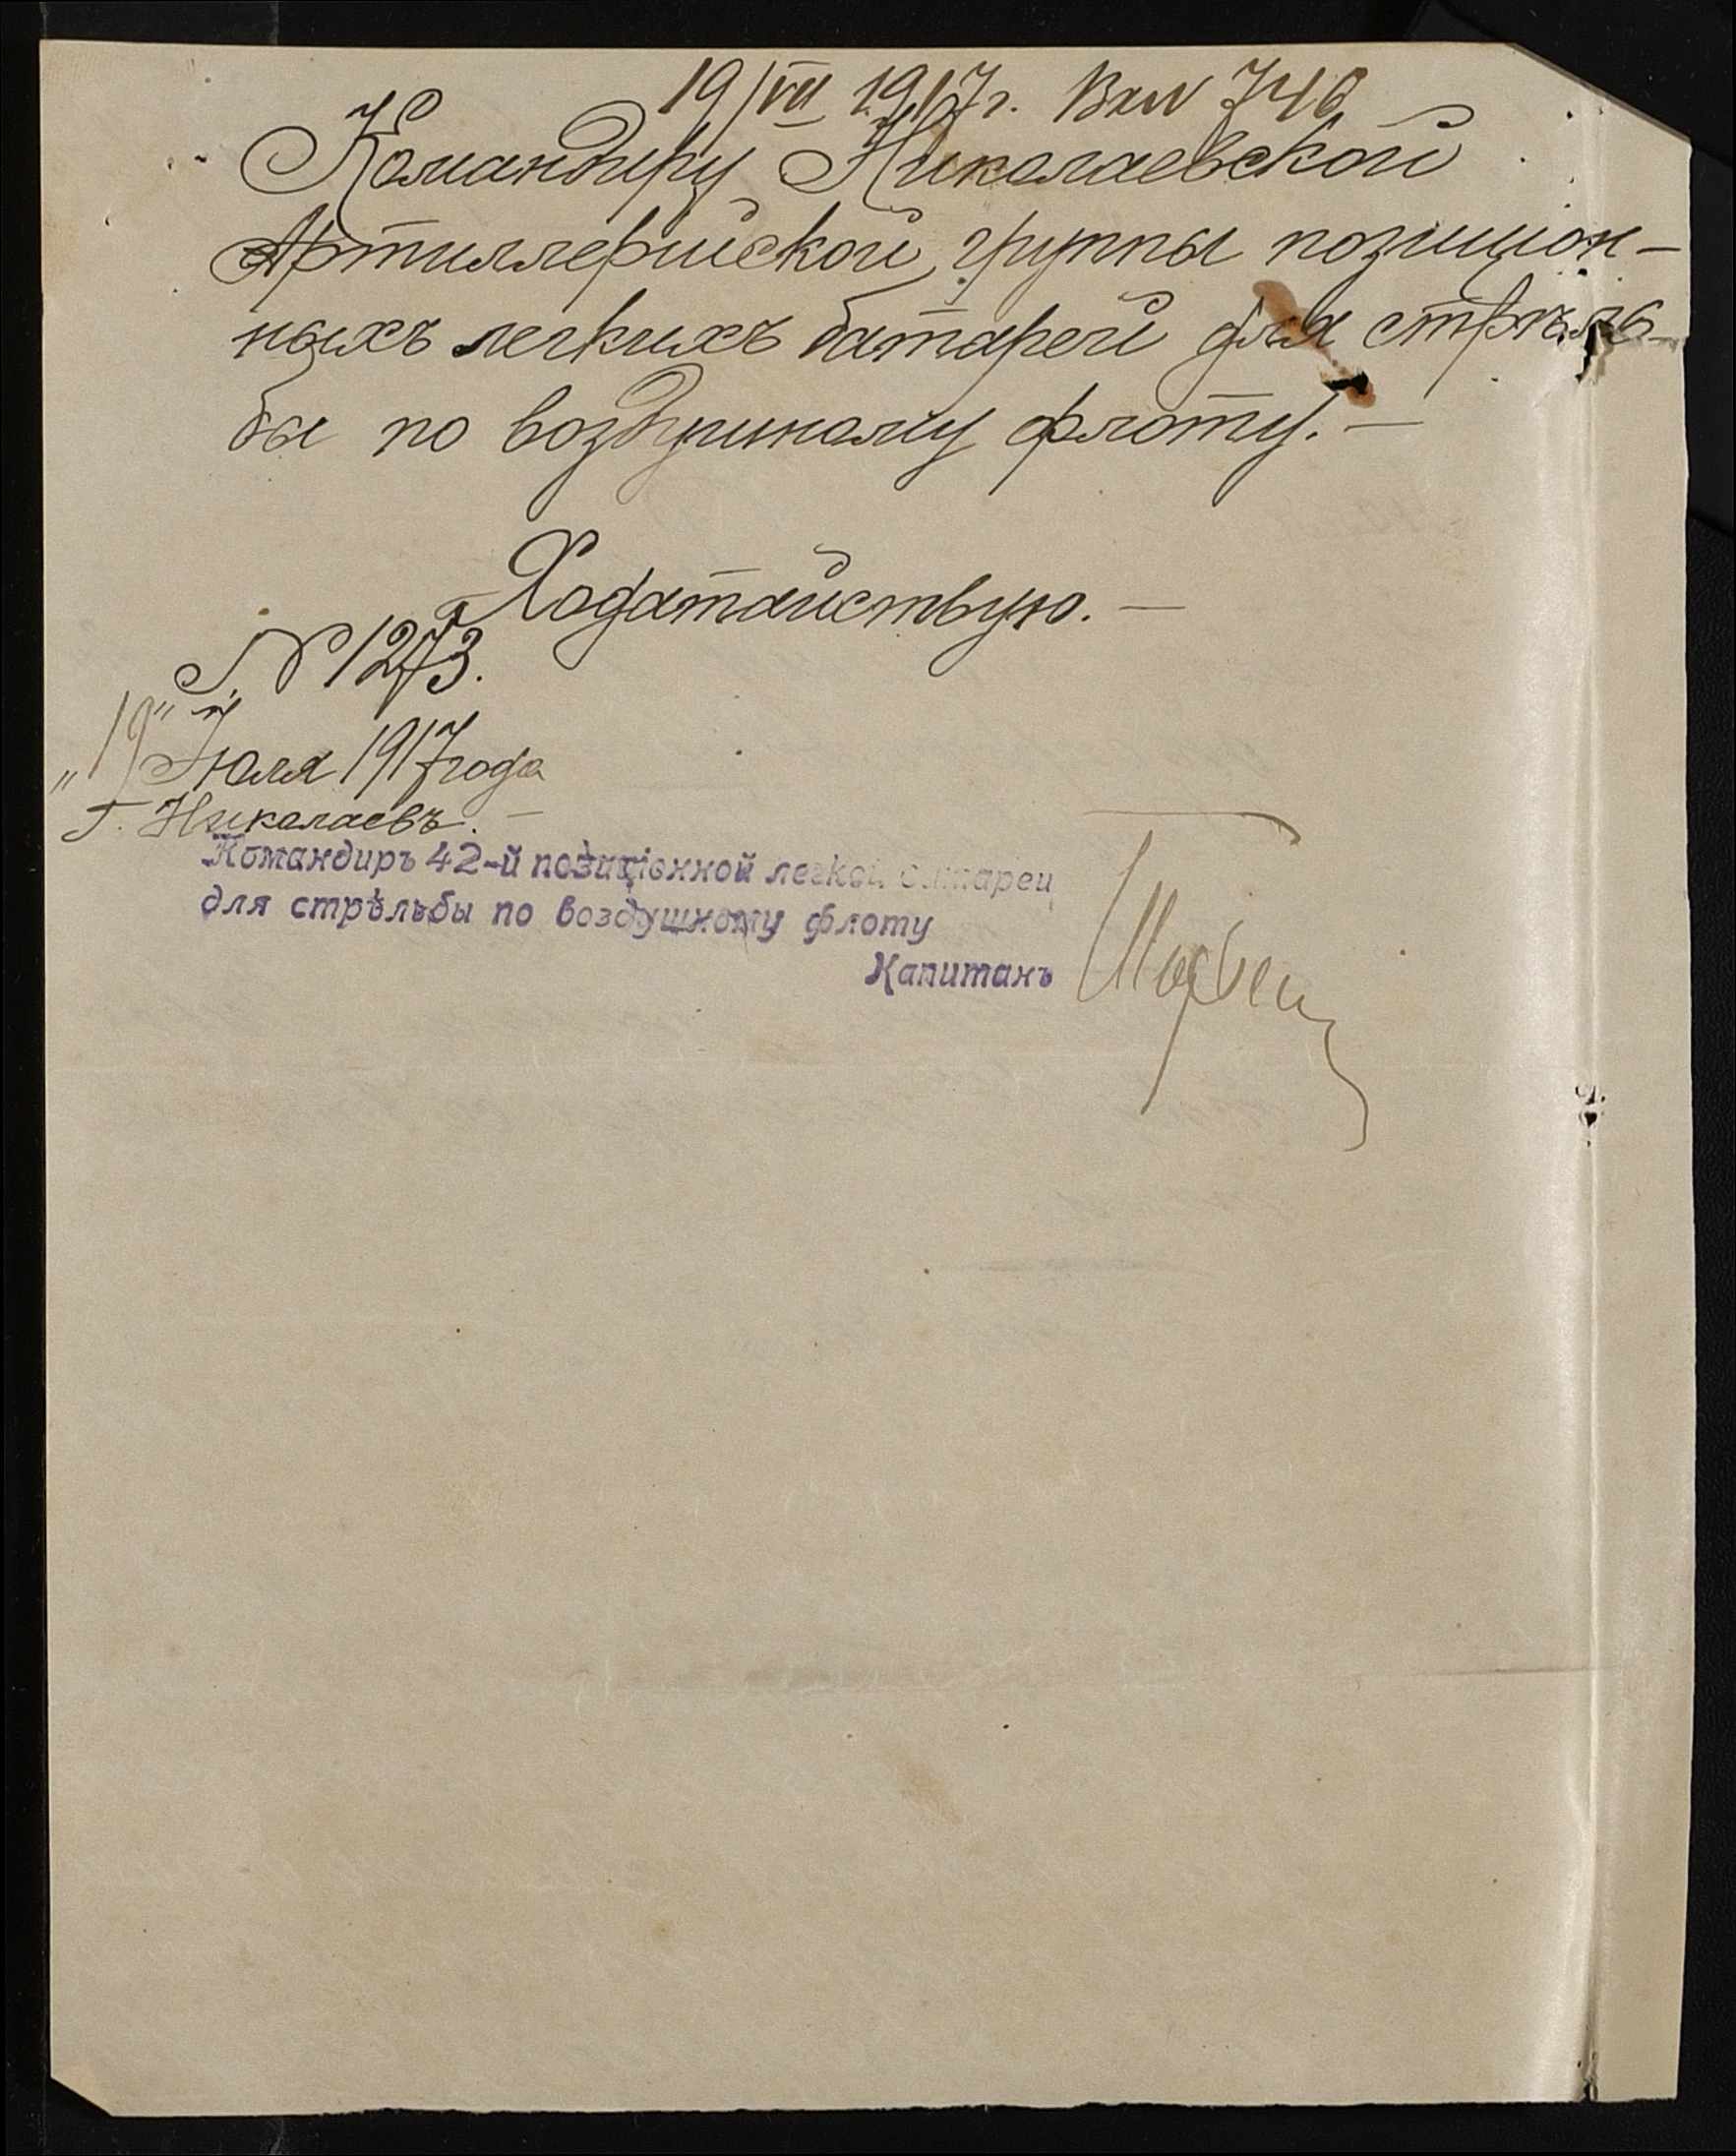 19/VII 1917 г. Вх № 746
Командиру Николаевской
Артиллерийской группы позицiон-
ныхъ легкихъ батарей для стрѣль-
бы по воздушному флоту. —
Ходатайствую. —
№ 1273.
„19" Iюля 1917 года
г. Николаевъ. —
Командиръ 42-й позицiонной легкой батареи
для стрѣльбы по воздушному флоту
Капитанъ